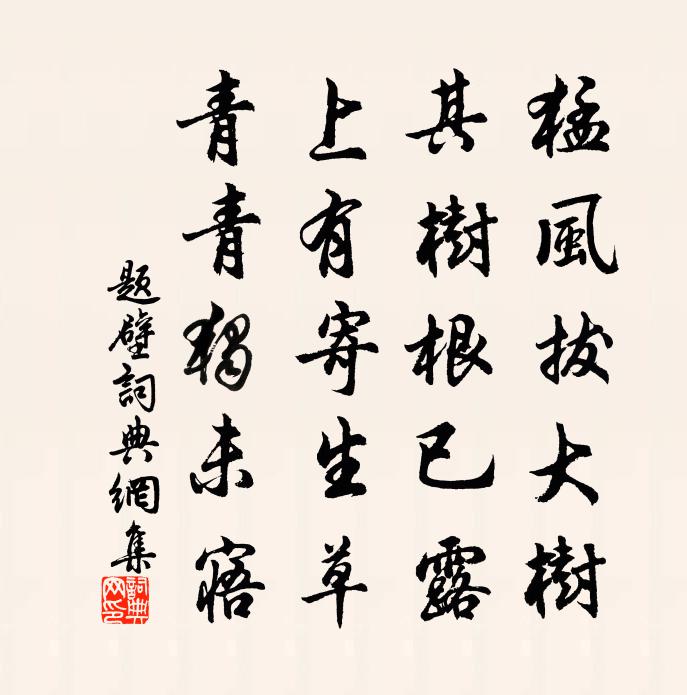 猛風拔大樹
其樹根已露
上有寄生草
青青獨未寤
題壁詞典網集
詞典网印